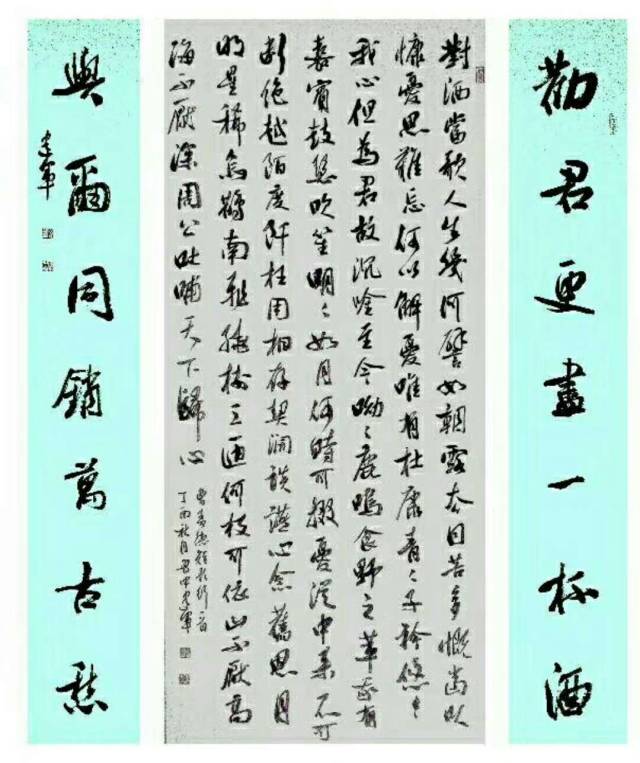 勸君更盡一杯酒
對酒當歌人生幾何譬如朝露去日苦多慨當以
慷憂思難忘何以解憂唯有杜康青〻子衿悠〻
我心但為君故沉吟至今呦〻鹿鳴食野之苹我有
嘉賓鼓瑟吹笙明〻如月何時可掇憂從中來不可
斷絕越陌度阡枉用相存契闊談讌心念舊恩月
明星稀烏鵲南飛繞樹三匝何枝可依山不厭高
海不厭深周公吐哺天下歸心
曹孟德短歌行一首
丁酉秋月建軍
與爾同銷萬古愁
建軍